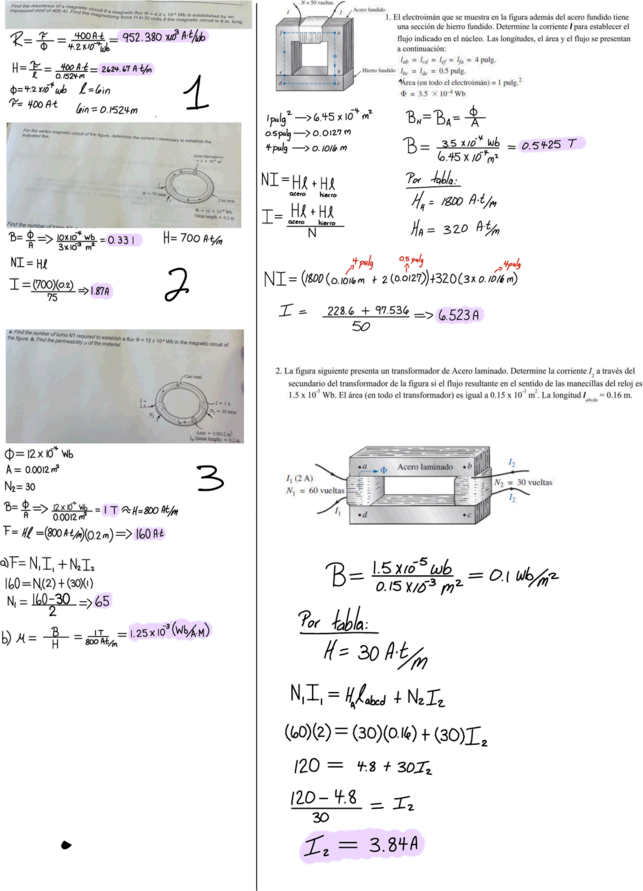 Find the reluctance of a magnetic circuit if a magnetic flux Φ = 4.2 × 10⁻⁴ Wb is established by an
impressed mmf of 400 At. Find the magnetizing force H in SI units if the magnetic circuit is 6 in. long.
R = F/Φ = 400 A·t / 4.2×10⁻⁴ Wb = 952.380 x10³ A·t/Wb
H = F/ℓ = 400 A·t / 0.1524m = 2624.67 A·t/m
Φ = 4.2 x10⁻⁴ wb ℓ = 6in
F = 400 A·t 6in = 0.1524m
1
For the series magnetic circuit of the figure, determine the current I necessary to establish the
indicated flux.
N = 75 turns
Cast iron
Find the number of turns N1
B = Φ/A => 10x10⁻⁴ wb / 3x10⁻³ m² = 0.331 H = 700 A·t/m
NI = Hℓ
I = (700)(0.2) / 75 => 1.87A
2
a. Find the number of turns N1 required to establish a flux Φ = 12 x 10⁻⁴ Wb in the magnetic circuit of
the figure. b. Find the permeability μ of the material.
Cast steel
I = 2 A
N₁
I = 1 A
N₂ = 30 turns
Area = 0.0012 m²
lₘ (mean length) = 0.2 m
Φ = 12 x 10⁻⁴ Wb
A = 0.0012 m²
N₂ = 30
3
B = Φ/A => 12 x10⁻⁴ wb / 0.0012 m² = 1 T ≈ H = 800 At/m
F = Hℓ = (800 A·t/m)(0.2m) => 160 A·t
a) F = N₁I₁ + N₂I₂
160 = N₁(2) + (30)(1)
N₁ = 160-30 / 2 => 65
b) μ = B/H = 1T / 800 At/m = 1.25 x 10⁻³ (Wb/A·M)
N = 50 vueltas
Acero fundido
Hierro fundido
1. El electroimán que se muestra en la figura además del acero fundido tiene
una sección de hierro fundido. Determine la corriente I para establecer el
flujo indicado en el núcleo. Las longitudes, el área y el flujo se presentan
a continuación:
l_ab = l_cd = l_ef = l_fa = 4 pulg.
l_bc = l_de = 0.5 pulg.
Área (en todo el electroimán) = 1 pulg.²
Φ = 3.5 × 10⁻⁴ Wb
1pulg² → 6.45 x10⁻⁴ m²
0.5pulg → 0.0127 m
4 pulg → 0.1016 m
B_H = B_A = Φ/A
B = 3.5 x10⁻⁴ Wb / 6.45 x10⁻⁴ m² = 0.5425 T
NI = Hℓ acero + Hℓ hierro
I = Hℓ acero + Hℓ hierro / N
Por tabla:
H_H = 1800 A·t/m
H_A = 320 A·t/m
4 pulg 0.5 pulg 4pulg
NI = (1800(0.1016m + 2(0.0127))+320(3x0.1016m)
I = 228.6 + 97.536 / 50 => 6.523A
2. La figura siguiente presenta un transformador de Acero laminado. Determine la corriente I₂ a través del
secundario del transformador de la figura si el flujo resultante en el sentido de las manecillas del reloj es
1.5 x 10⁻⁵ Wb. El área (en todo el transformador) es igual a 0.15 x 10⁻³ m². La longitud l_abcda = 0.16 m.
a Φ Acero laminado b
I₁ (2 A)
N₁ = 60 vueltas
I₁
I₂
N₂ = 30 vueltas
I₂
d c
B = 1.5 x10⁻⁵ wb / 0.15 x10⁻³ m² = 0.1 wb/m²
Por tabla:
H = 30 A·t/m
N₁I₁ = H_Aℓabcd + N₂I₂
(60)(2) = (30)(0.16) + (30)I₂
120 = 4.8 + 30I₂
120 - 4.8 / 30 = I₂
I₂ = 3.84A